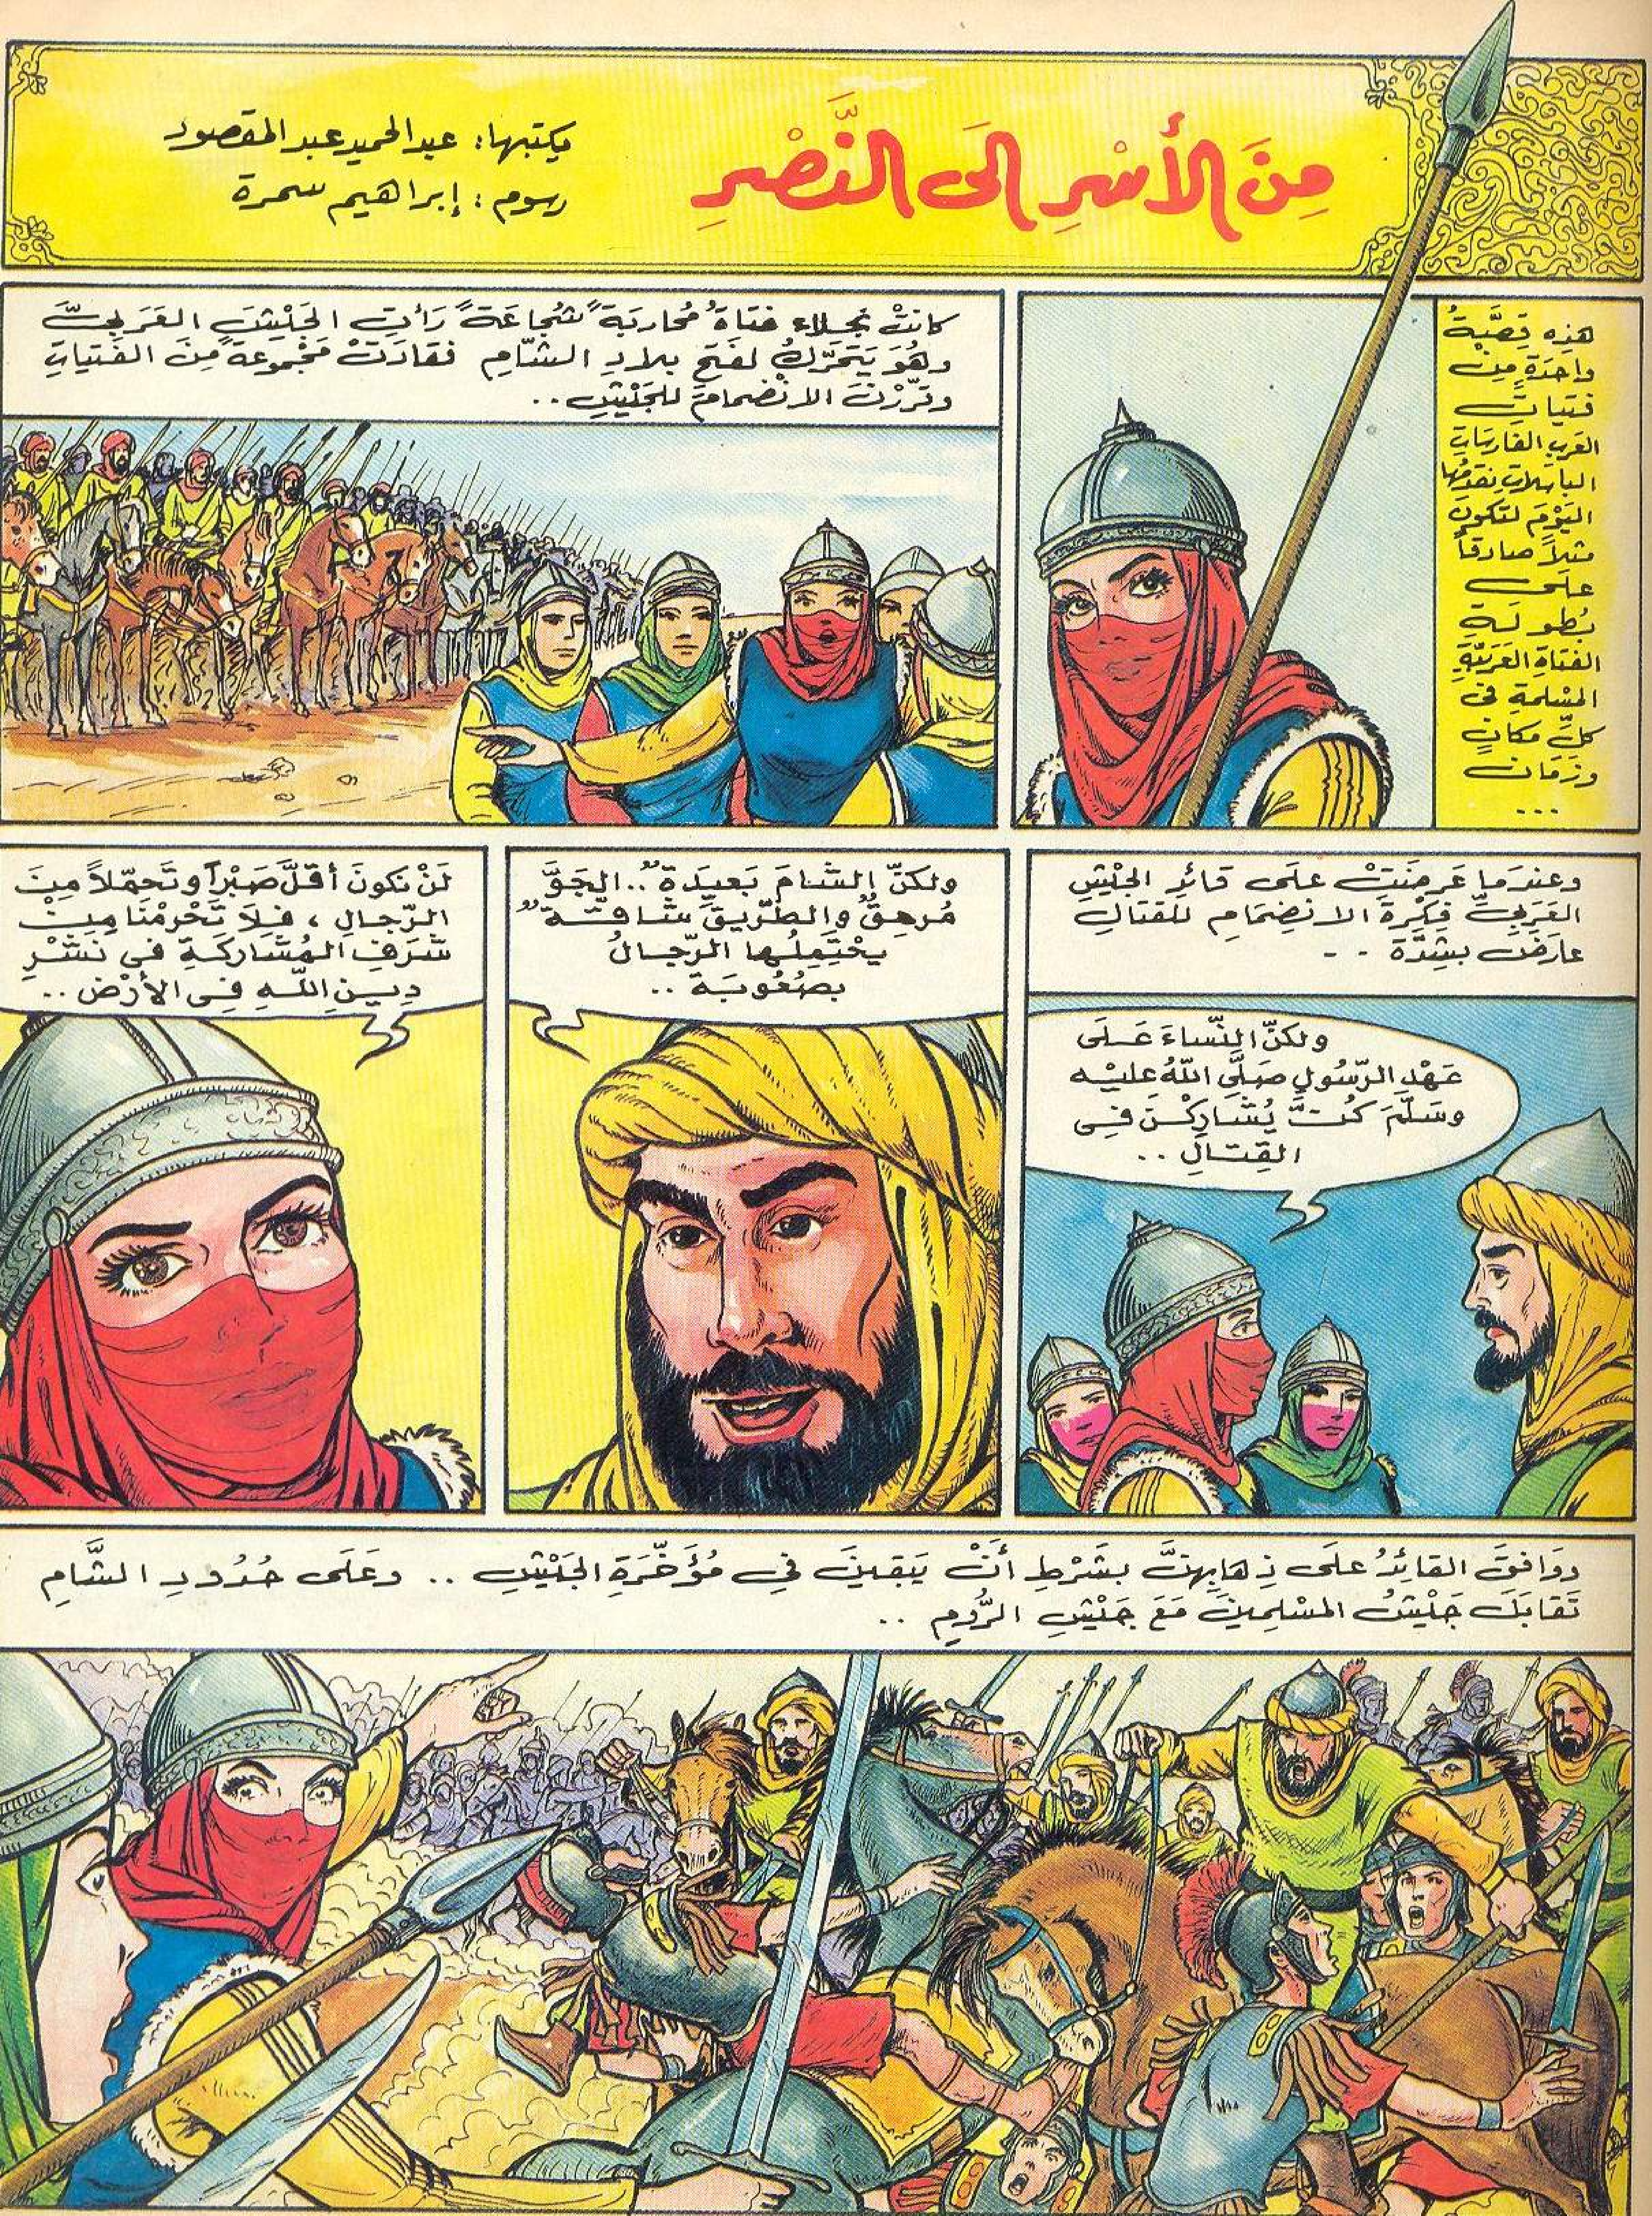 مِنَ الأَسْرِ إلَى النَّصْرِ
يكتبها: عبدالحميد عبدالمقصود
رسوم: إبراهيم سمرة
هذِه قِصَّةُ
واحِدَةٍ مِنْ
فتياتِ
العَربِ الفارِسَاتِ
الباسِلاتِ نقدِّمُها
اليَوْمَ لتكونَ
مثلاً صادقاً
علَى
بُطولَةِ
الفتاةِ العَرَبيَّةِ
المُسْلمةِ فى
كلِّ مكانٍ
وزمَان
...
كانتْ نجلاء فتاةً مُحاربَةً شُجاعَةً رَأتِ الجَيْشَ العَرَبىَّ
وهُوَ يَتَحَرَّكُ لفَتحِ بلادِ الشّامِ فقادَتْ مَجْموعةً مِنَ الفَتياتِ
وقرّرْنَ الانْضمامَ للجَيْشِ..
وعندَما عَرضَتْ علَى قائدِ الجَيْشِ
العَرَبِىِّ فِكْرَةَ الانضِمَامِ للقتالِ
عارضَ بشِدَّة ..
ولكنّ النّساءَ عَلَى
عَهْدِ الرّسُولِ صَلَّى اللّهُ عليْه
وسَلَّمَ كُنَّ يُشَارِكْنَ فِى
القِتَالِ ..
ولكنّ الشامَ بَعيدَةٌ.. الجَوَّ
مُرهِقٌ والطّرِيقَ شَاقّةٌ
يحْتَمِلُها الرّجالُ
بصُعُوبَة ..
لَنْ نكونَ أقلَّ صَبْراً وتَحمّلاً مِنَ
الرّجالِ ، فلاَ تَحْرمْنَا مِنْ
شَرَفِ المُشَاركَةِ فى نَشْرِ
دِينِ اللّهِ فِى الأرْض ..
ووَافقَ القائِدُ علَى ذِهابِهنَّ بشَرْطِ أنْ يَبقينَ فِى مُؤَخّرَةِ الجَيْشِ .. وعَلَى حُدُودِ الشَّامِ
تَقابَلَ جَيْشُ المسْلِمينَ مَعَ جَيْشِ الرُّومِ ..